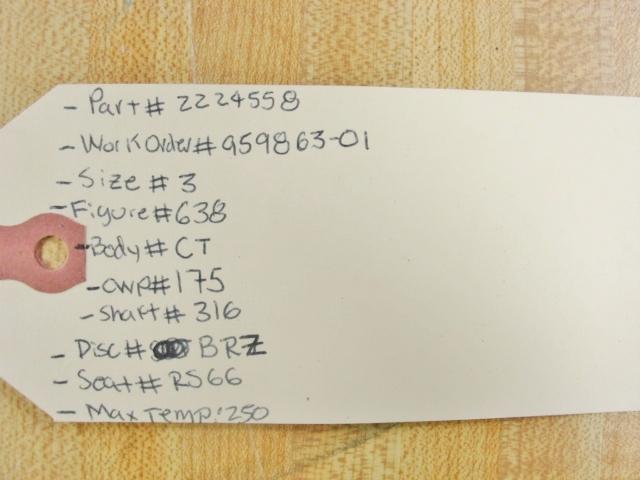 - Part# 2224558
- Work Order# 959863-01
- Size # 3
- Figure#638
- Body# CT
- CWP#175
- Shaft# 316
- Disc# BRZ
- Seat# RS66
- Max Temp: 250